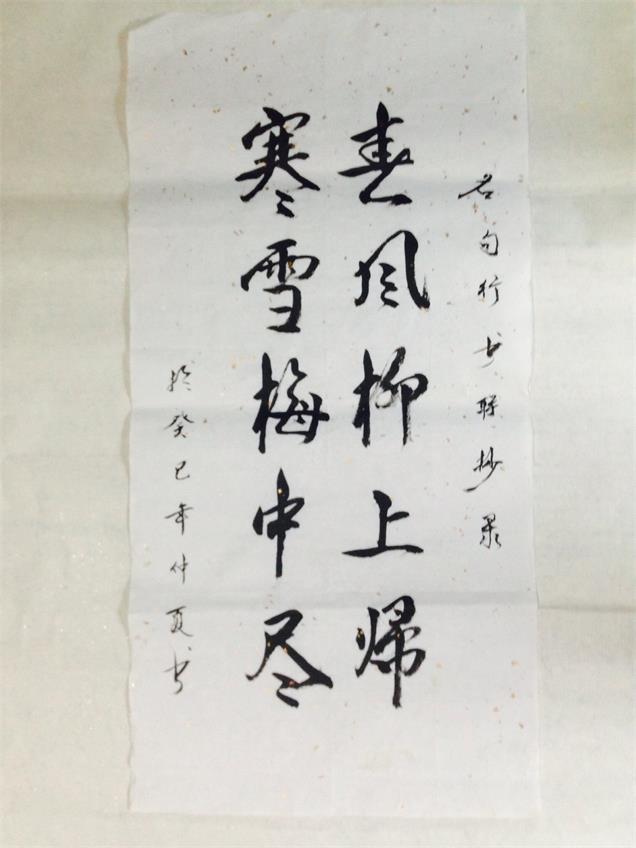 名句行书联抄录
春风柳上归
寒雪梅中尽
於癸巳年仲夏书